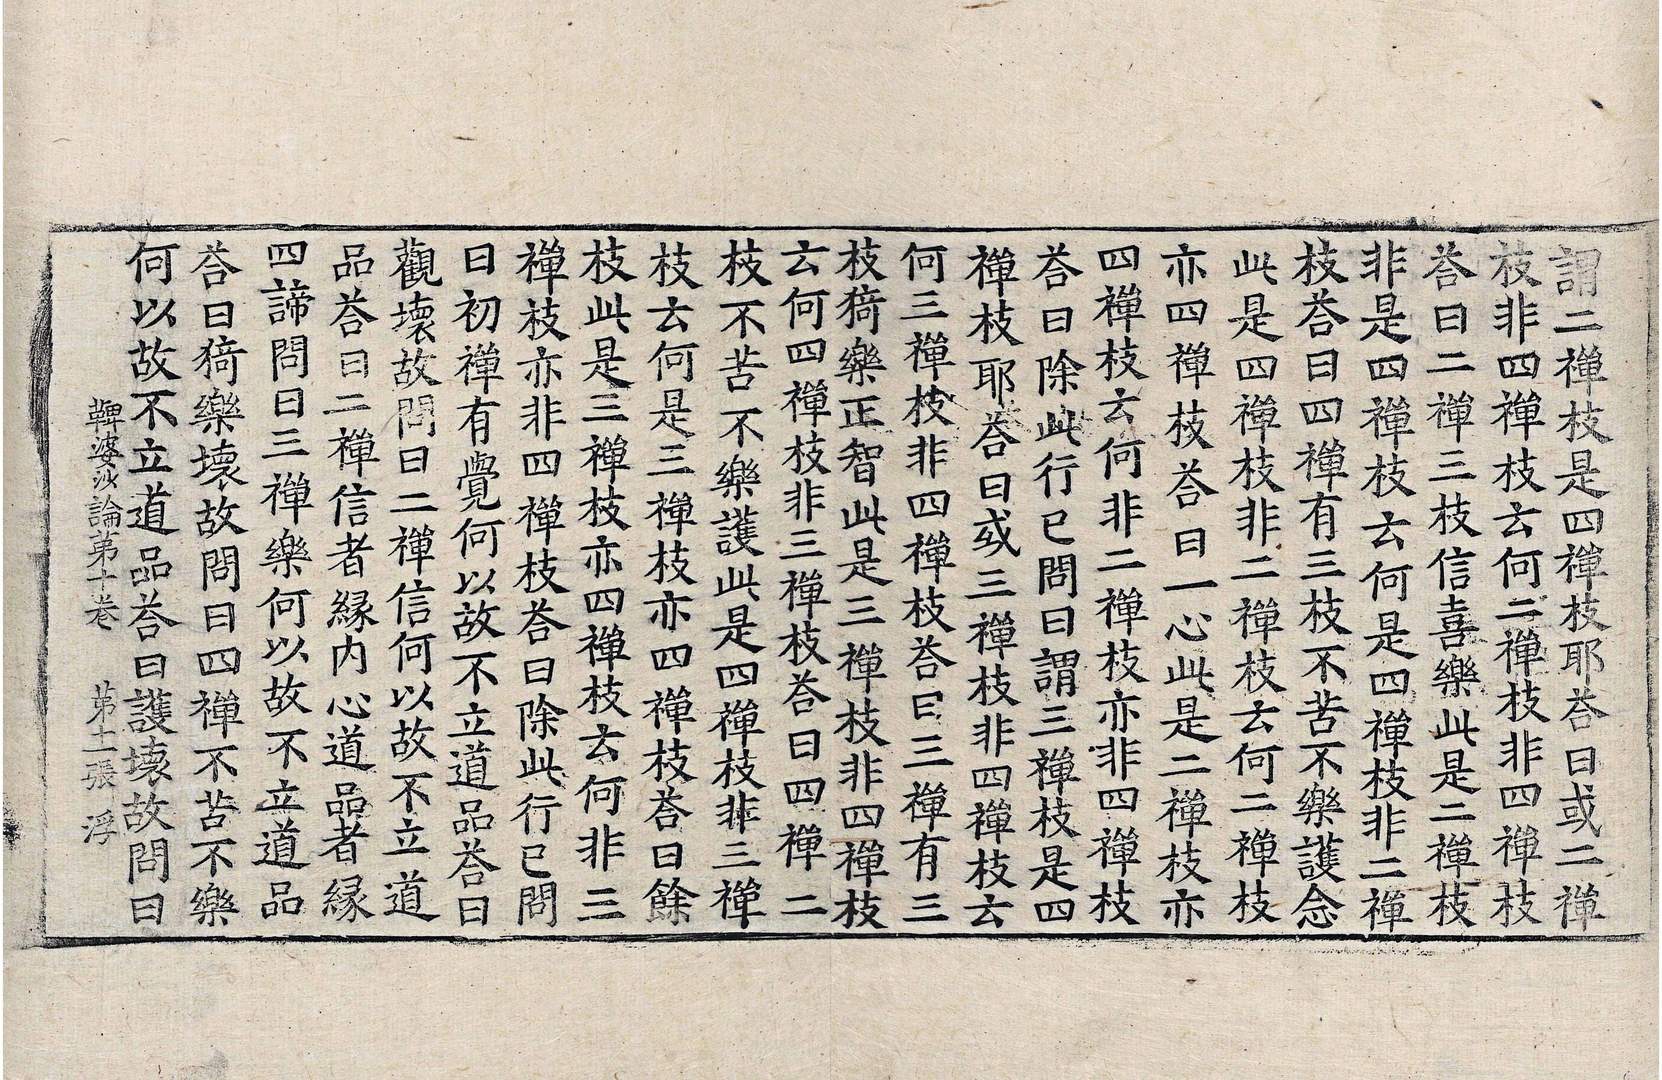 謂二禪枝是四禪枝耶荅曰或二禪
枝非四禪枝云何二禪枝非四禪枝
荅曰二禪三枝信喜樂此是二禪枝
非是四禪枝云何是四禪枝非二禪
枝荅曰四禪有三枝不苦不樂護念
此是四禪枝非二禪枝云何二禪枝
亦四禪枝荅曰一心此是二禪枝亦
四禪枝云何非二禪枝亦非四禪枝
荅曰除此行已問曰謂三禪枝是四
禪枝耶荅曰或三禪枝非四禪枝云
何三禪枝非四禪枝荅曰三禪有三
枝猗樂正智此是三禪枝非四禪枝
云何四禪枝非三禪枝荅曰四禪二
枝不苦不樂護此是四禪枝非三禪
枝云何是三禪枝亦四禪枝荅曰餘
枝此是三禪枝亦四禪枝云何非三
禪枝亦非四禪枝荅曰除此行已問
曰初禪有覺何以故不立道品荅曰
觀壞故問曰二禪信何以故不立道
品荅曰二禪信者縁内心道品者縁
四諦問曰三禪樂何以故不立道品
荅曰猗樂壞故問曰四禪不苦不樂
何以故不立道品荅曰護壞故問曰
鞞婆沙論第十卷 第十一張 浮